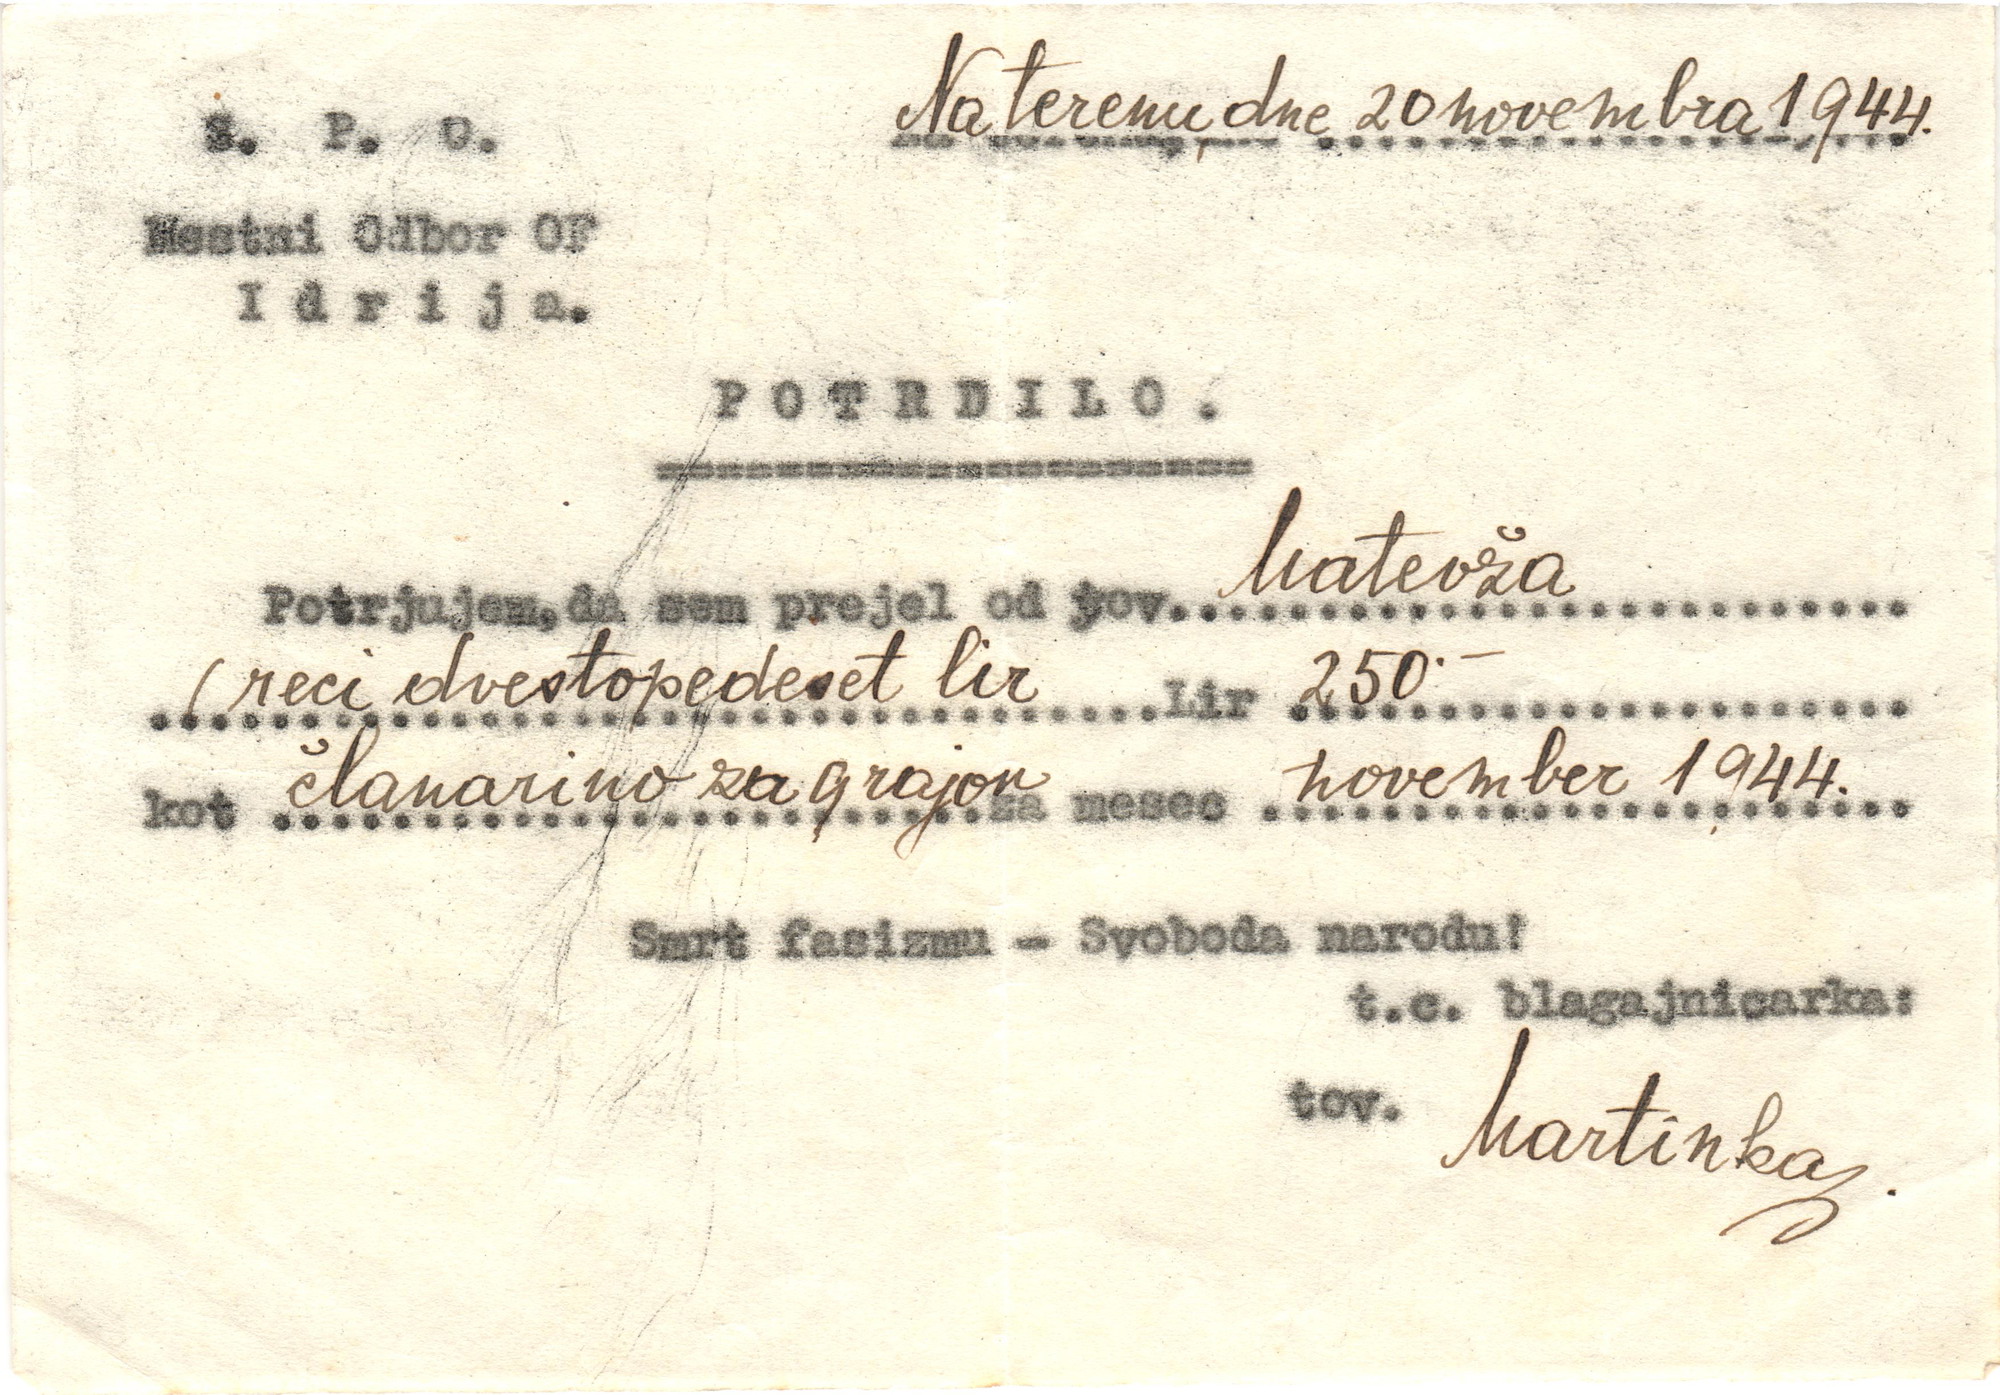 S. P. O.
Na terenu, dne 20 novembra 1944.
Mestni Odbor OF
Idrija.
POTRDILO.
Potrjujem, da sem prejel od tov. Matevža
(reci dvestopedeset lir Lir 250.-
kot članarino za grajon za mesec november 1944.
Smrt fasizmu - Svoboda narodu!
t.c. blagajnicarka:
tov. Martinka.